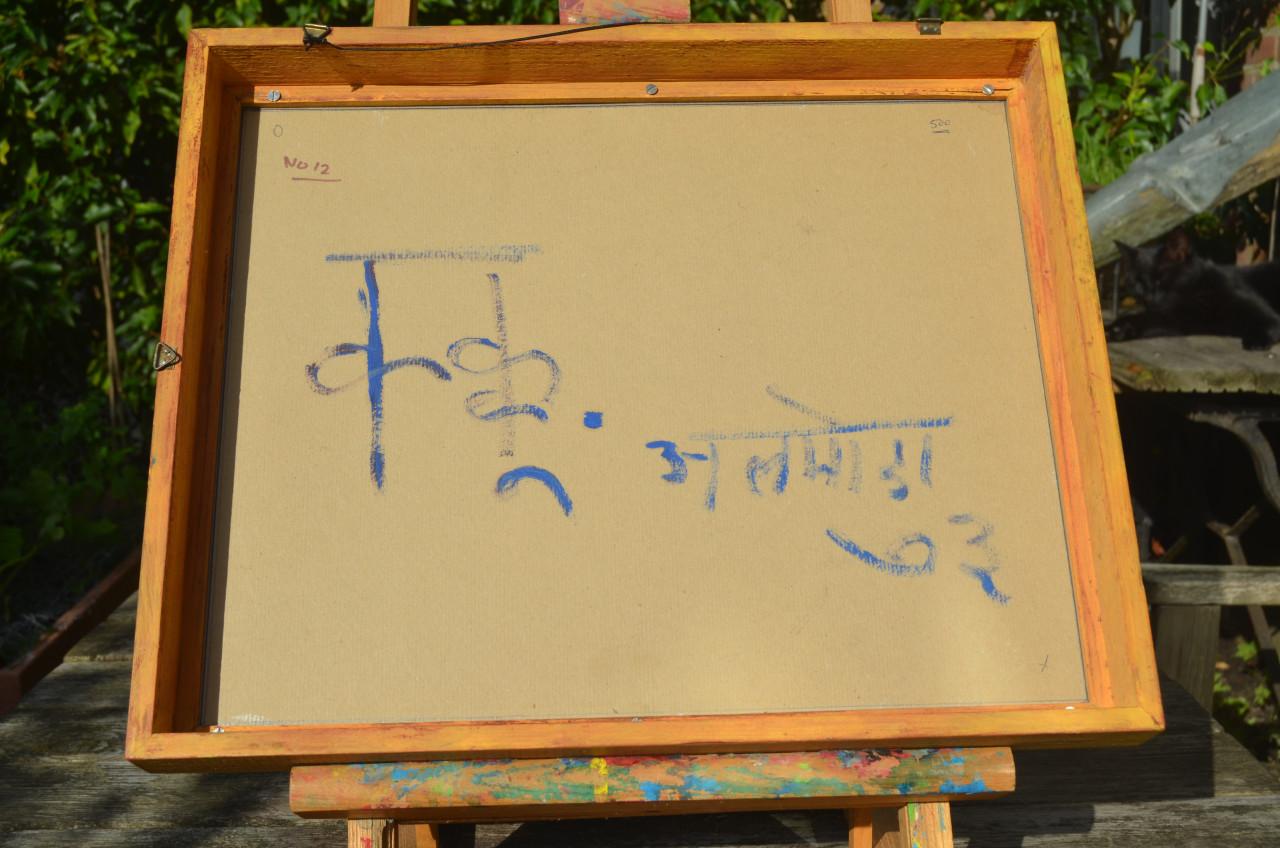 0 500
No 12
कक्कू.
अलमोडा
७३